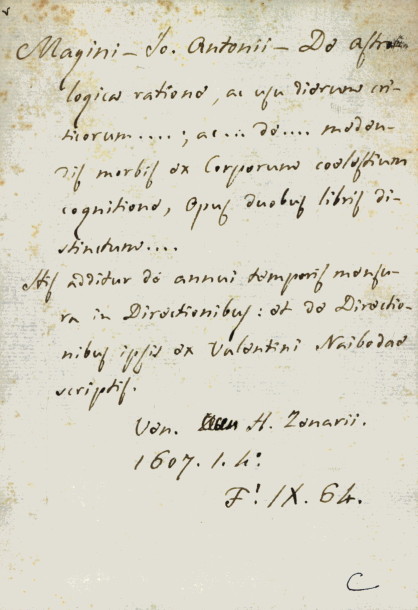 Magini – Jo. Antonii – De astro
logica ratione, ac usu dierum cri-
ticorum....; ac... de.... meden-
dis morbis ex Corporum coelestium
cognitione, Opus duobus libris di-
stinctum....
His additur de annui temporis mensu-
ra in Directionibus: et de Directio-
nibus ipsis ex Valentini Naibodae
scriptis.
Ven. H. Zenarii.
1607. 1. 4º.
F! IX. 64.
C